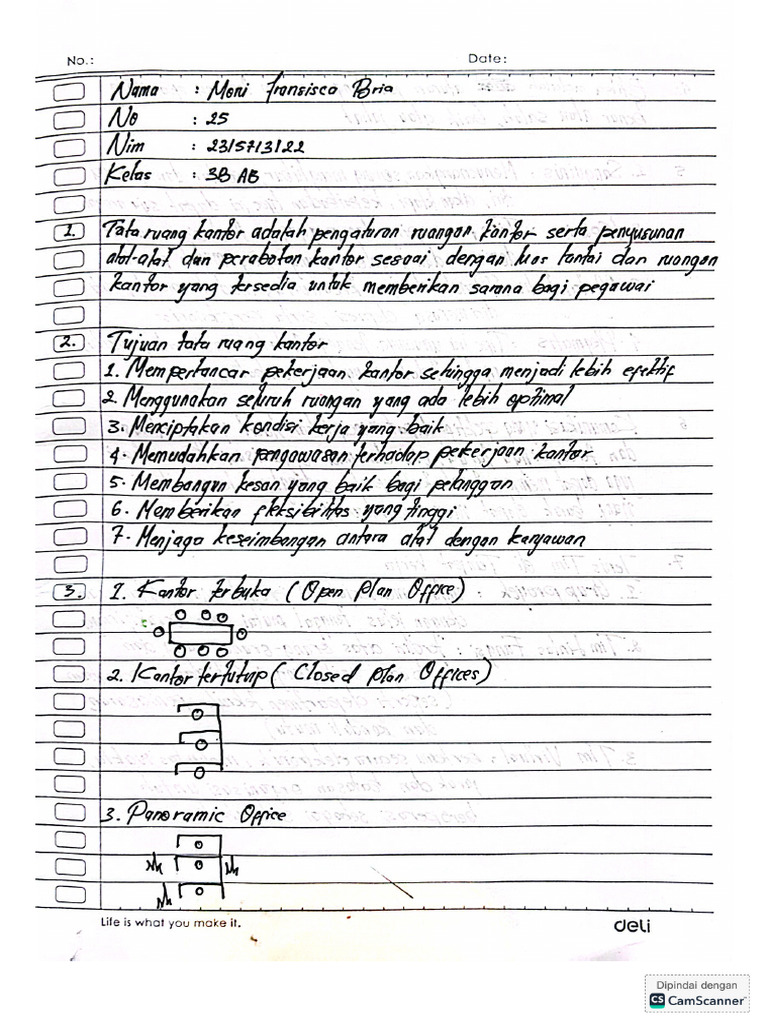 No.:
Date:
Nama : Moni Fransisca Bria
No : 25
Nim : 2315713122
Kelas : 3B AB
1. Tata ruang kantor adalah pengaturan ruangan kantor serta penyusunan
alat-alat dan perabotan kantor sesuai dengan luas lantai dan ruangan
kantor yang tersedia untuk memberikan sarana bagi pegawai
2. Tujuan tata ruang kantor
1. Memperlancar pekerjaan kantor sehingga menjadi lebih efektif
2. Menggunakan seluruh ruangan yang ada lebih optimal
3. Menciptakan kondisi kerja yang baik
4. Memudahkan pengawasan terhadap pekerjaan kantor
5. Membangun kesan yang baik bagi pelanggan
6. Memberikan fleksibilitas yang tinggi
7. Menjaga keseimbangan antara alat dengan karyawan
3. 1. Kantor terbuka (Open Plan Office)
2. Kantor tertutup (Closed Plan Offices)
3. Panoramic Office
Life is what you make it.
deli
Dipindai dengan
CS CamScanner